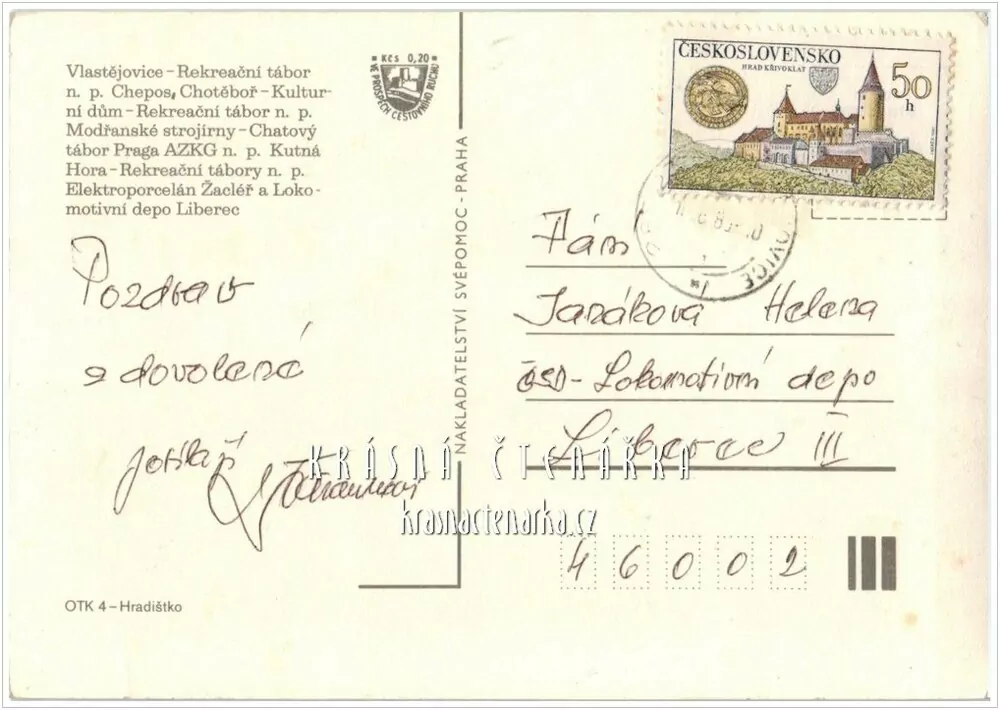 Vlastějovice – Rekreační tábor
n. p. Chepos, Chotěboř – Kultur-
ní dům – Rekreační tábor n. p.
Modřanské strojírny – Chatový
tábor Praga AZKG n. p. Kutná
Hora – Rekreační tábory n. p.
Elektroporcelán Žacléř a Loko-
motivní depo Liberec
Kčs 0,20
VE PROSPĚCH CESTOVNÍHO RUCHU
Pozdrav
z dovolené
OTK 4 – Hradištko
NAKLADATELSTVÍ SVÉPOMOC - PRAHA
ČESKOSLOVENSKO
HRAD KŘIVOKLÁT
50
h
OVICE
Paní
Janáková Helena
ČSD - Lokomotivní depo
Liberec III
46002
KRÁSNÁ ČTENÁŘKA
krasnactenarka.cz